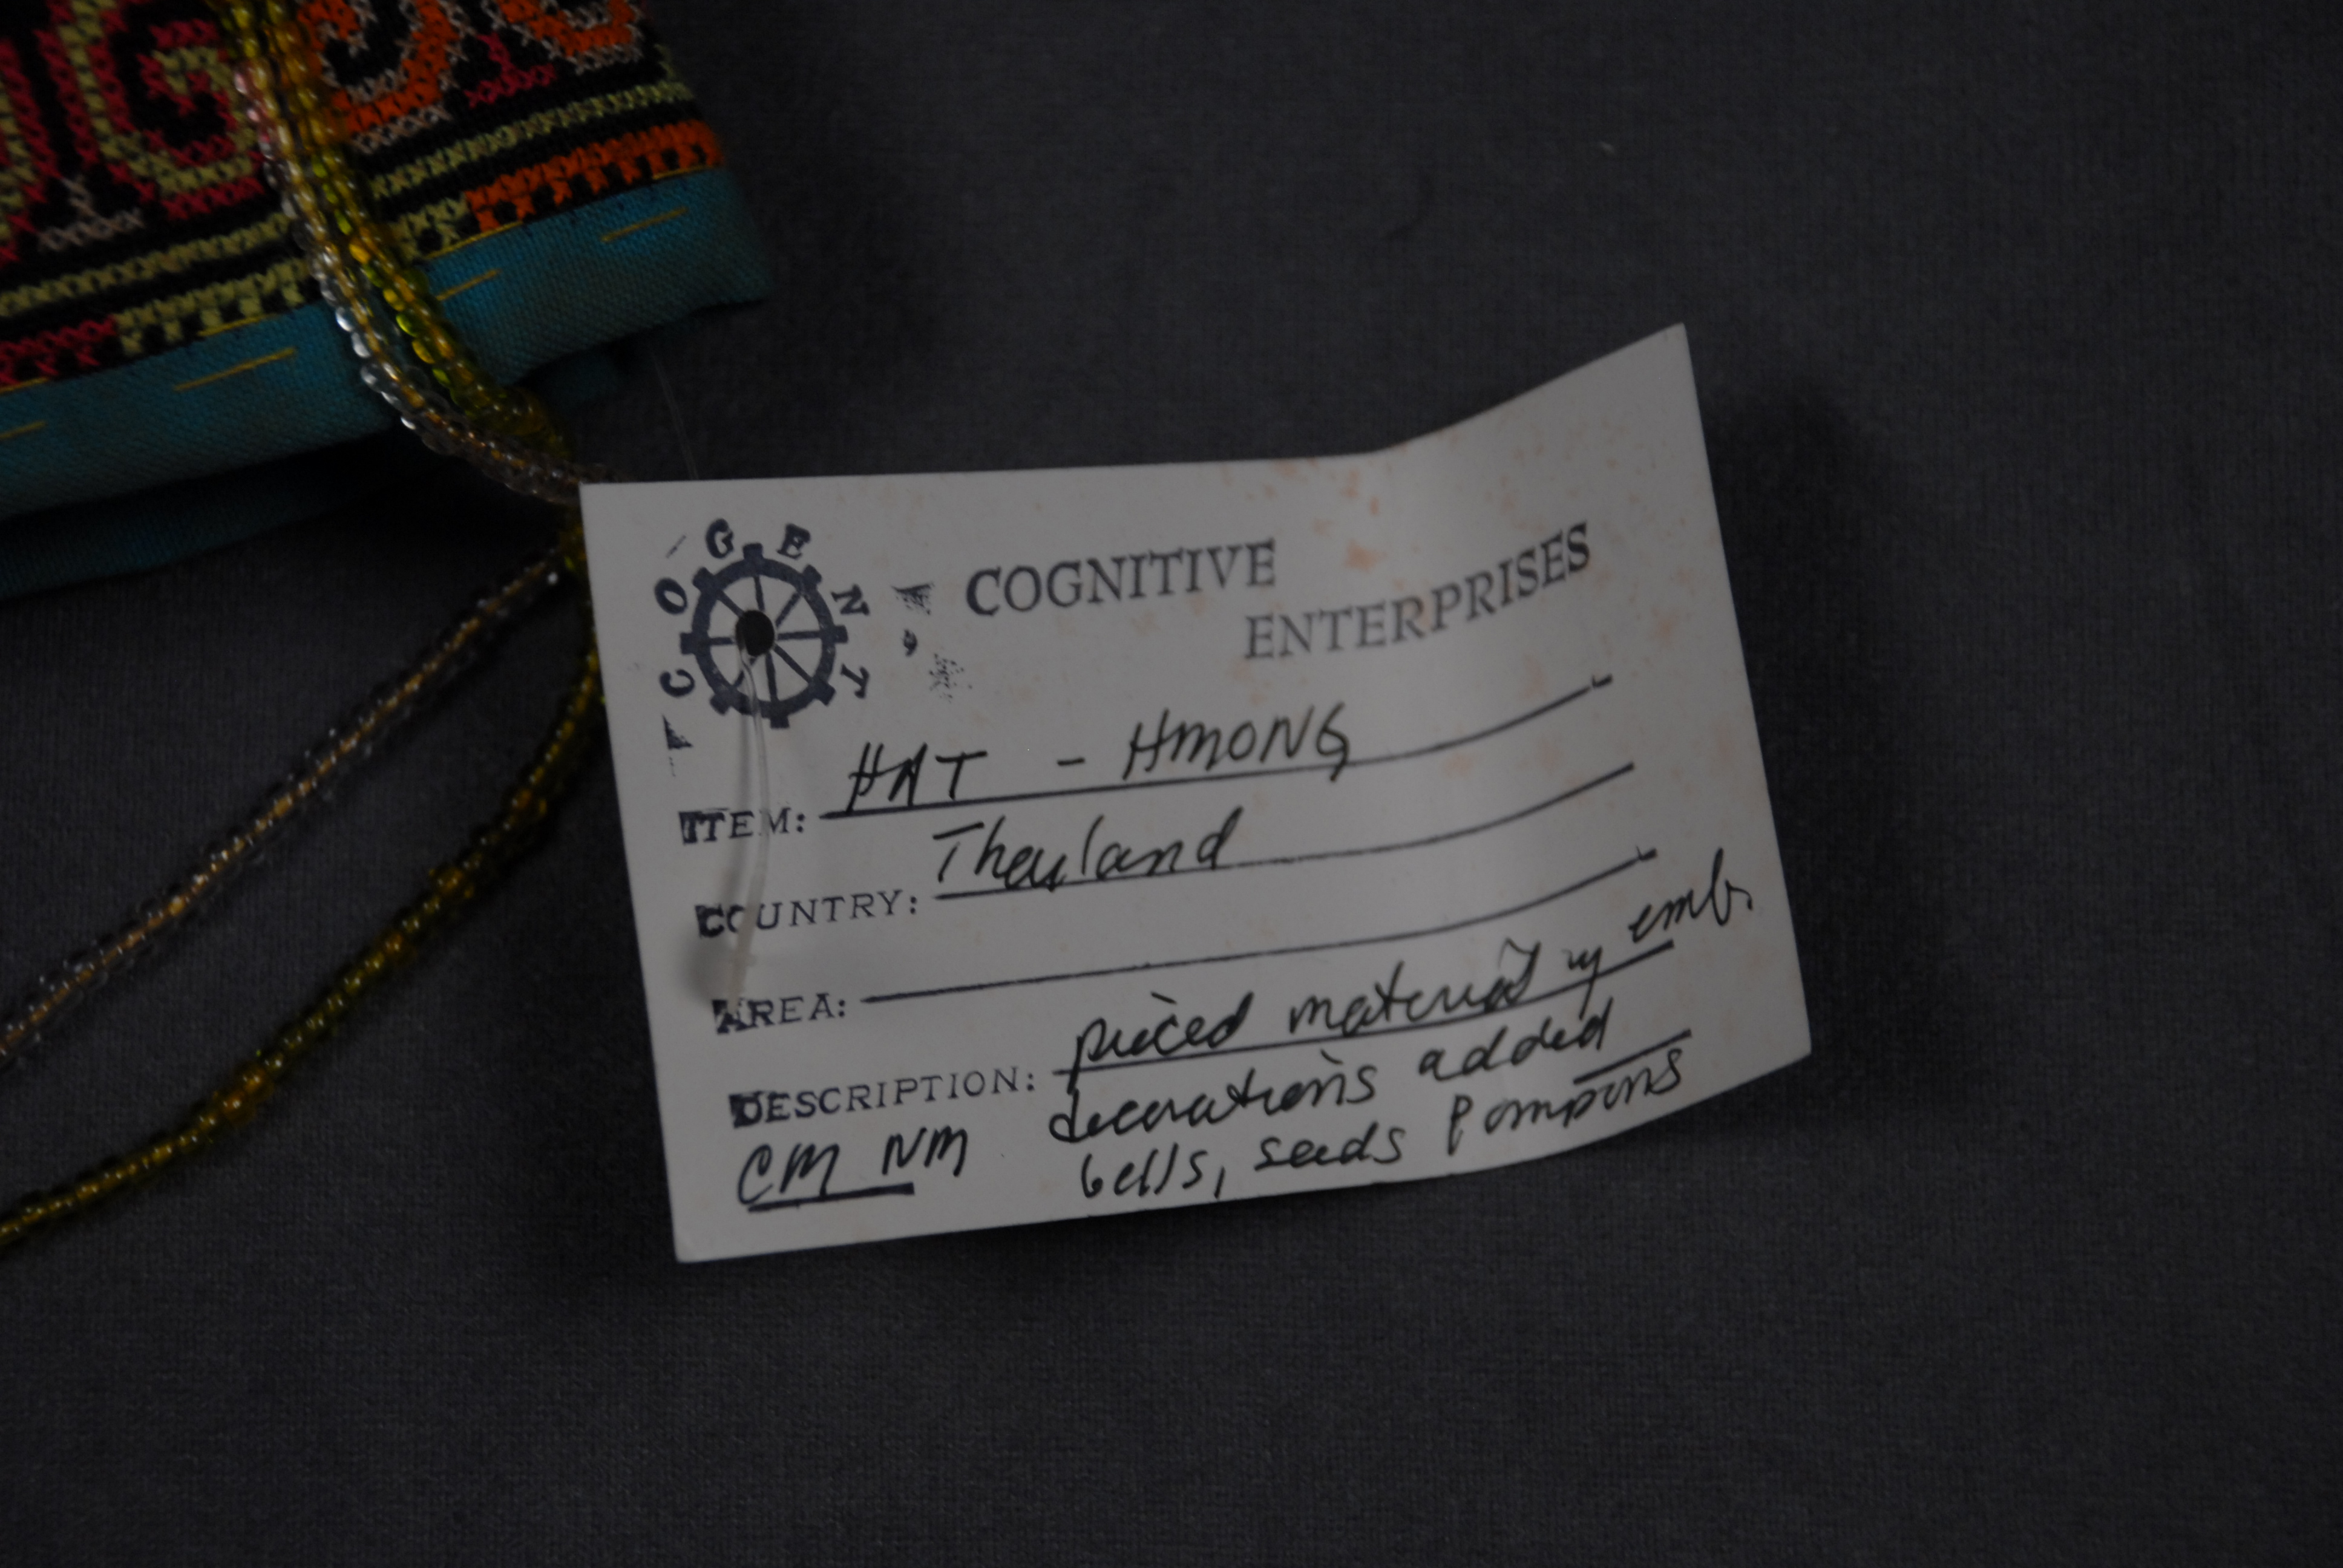 COGENT
COGNITIVE
ENTERPRISES
ITEM: HAT - HMONG
COUNTRY: Thayland
AREA:
DESCRIPTION: pieced material w emb.
decorations added
CM NM bells, seeds Pompons